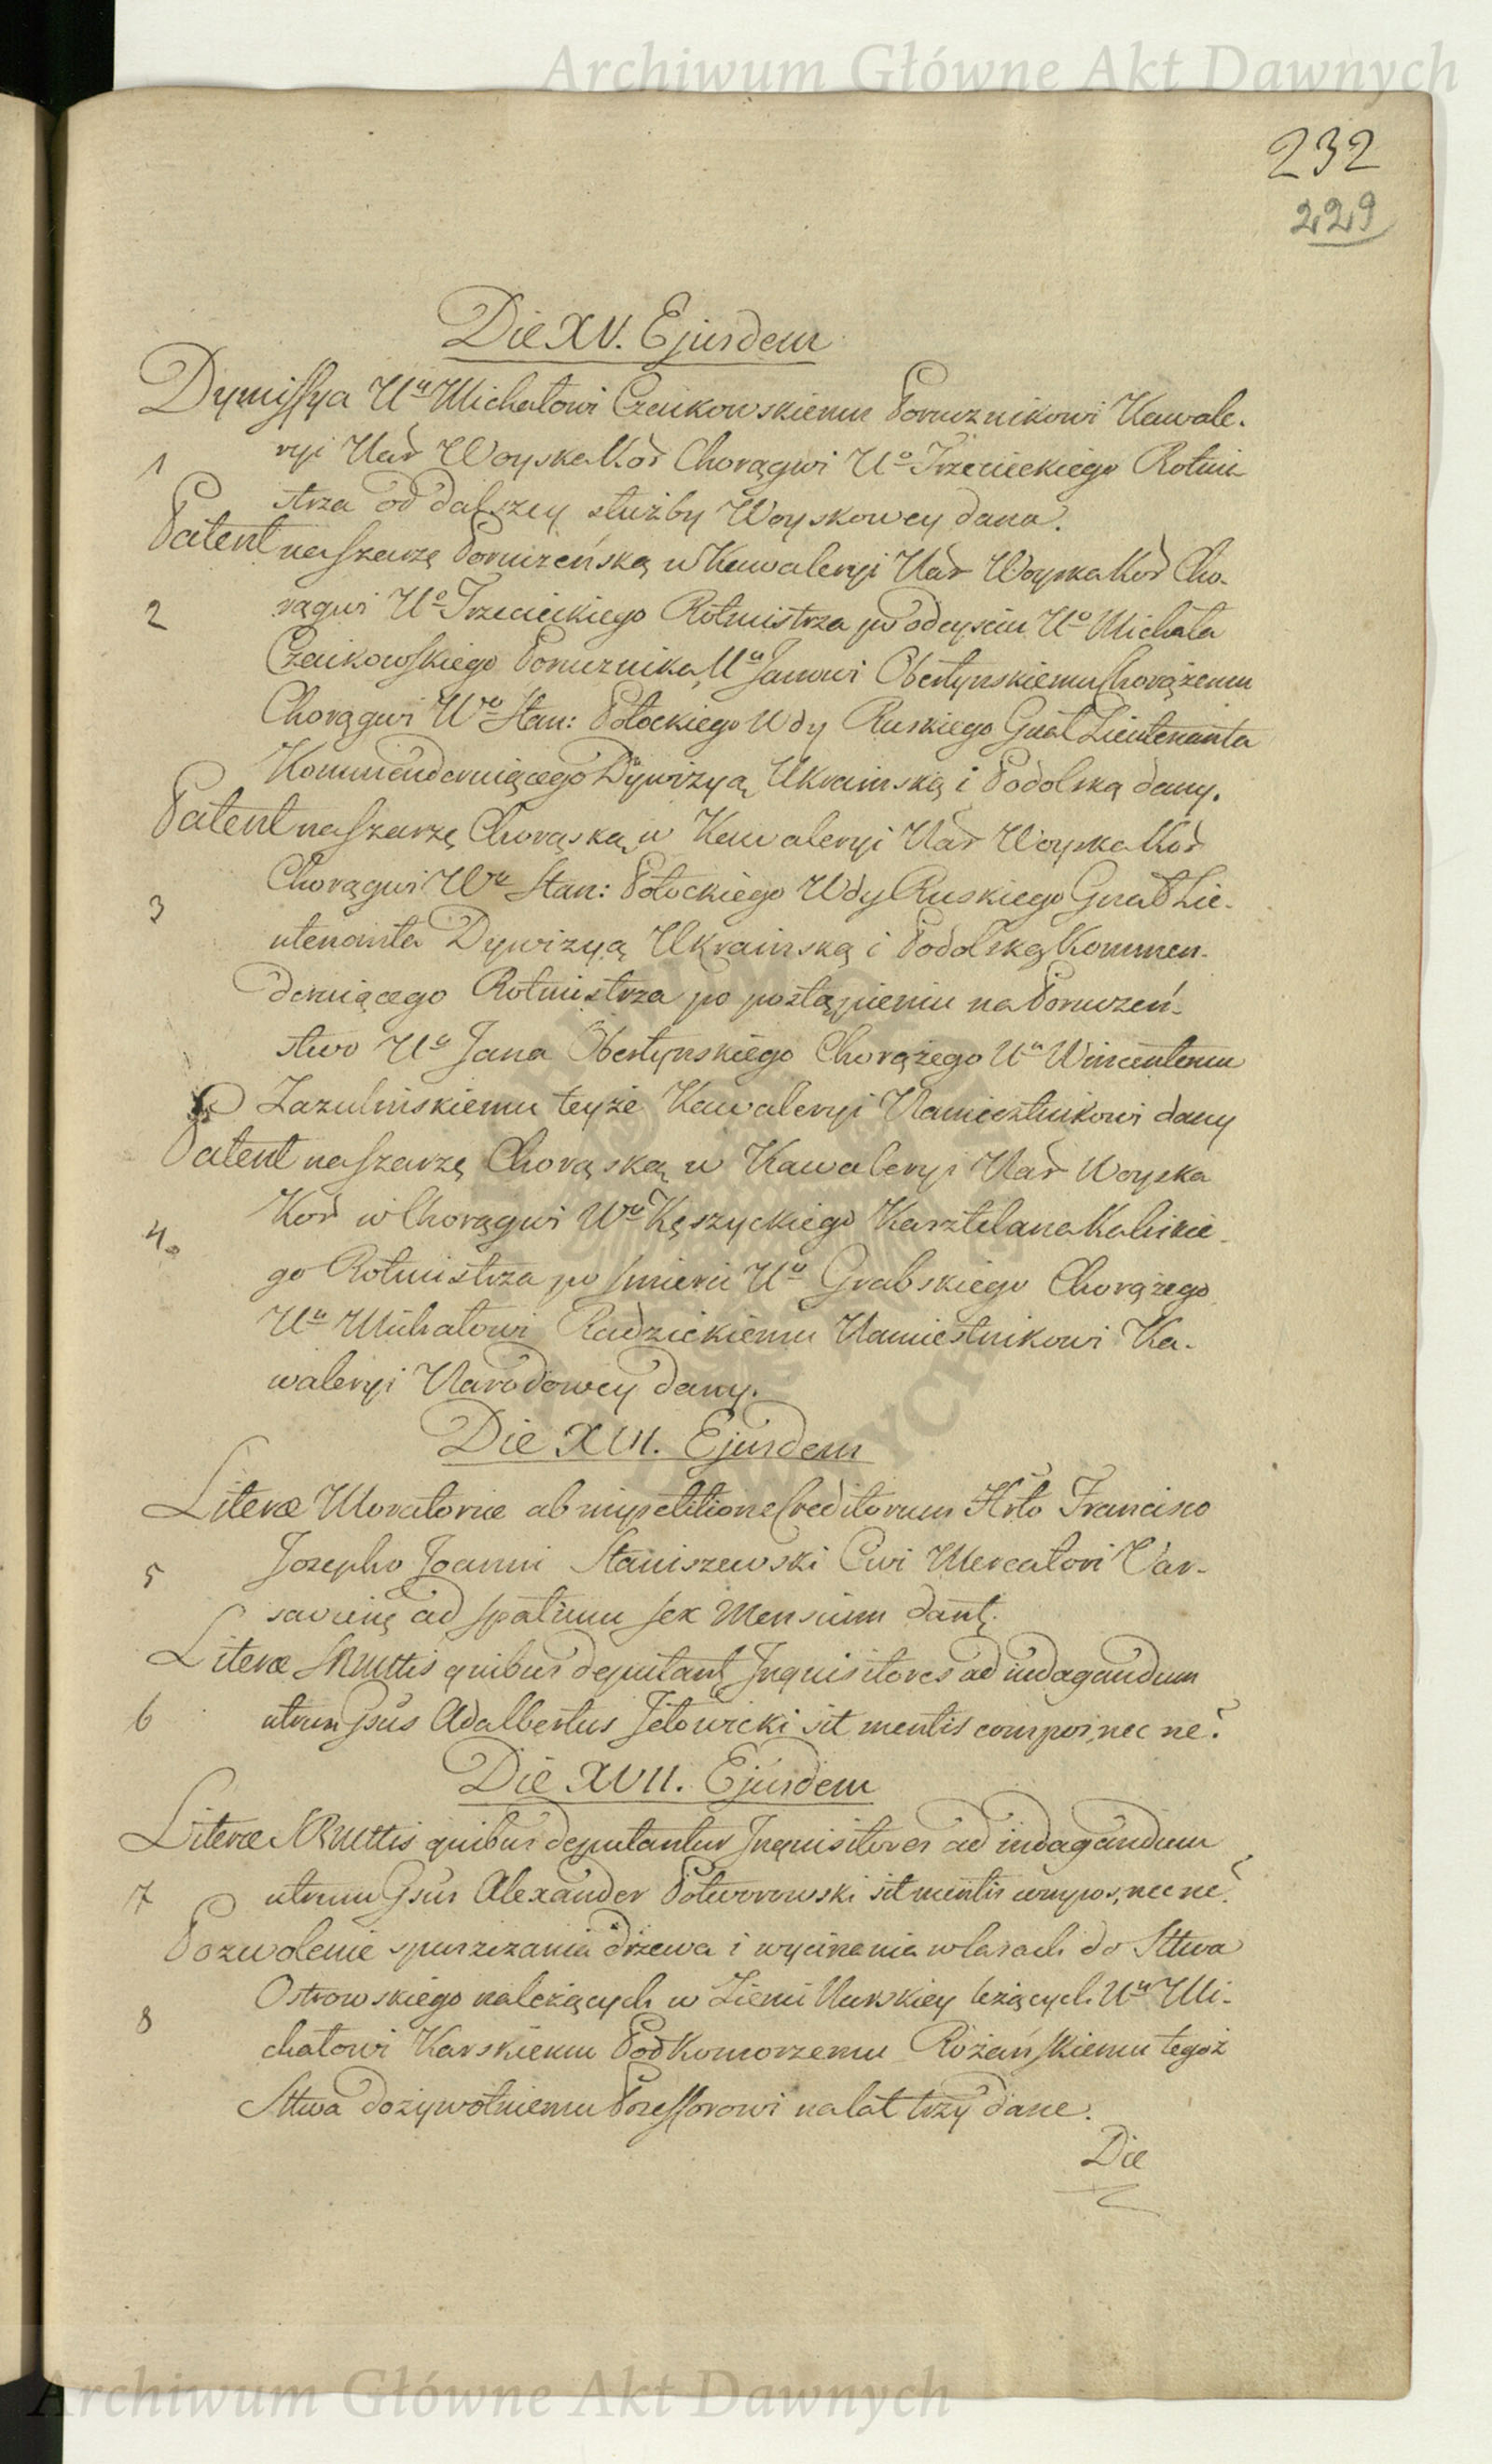 Archiwum Główne Akt Dawnych
232
229
Die XV. Ejusdem
Dymissya Uu Michałowi Czaikowskiemu Porucznikowi Kawale-
1 ryi Nar Woyska Kor Chorągwi Uo Trzecieckiego Rotmi
strza od dalszey służby Woyskowey dana.
Patent na Szarżę Poruczeńską w Kawaleryi Nar Woyska Kor Cho-
2 rągwi Uo Trzecieckiego Rotmistrza po odeyściu Uo Michała
Czaikowskiego Porucznika, Uu Janowi Obertynskiemu Chorążemu
Chorągwi Wo Stan: Potockiego Wdy Ruskiego Gnał Lieutenanta
Kommenderuiącego Dywizyą Ukrainską i Podolską dany.
Patent na Szarżę Chorąską w Kawaleryi Nar Woyska Kor
Chorągwi Wo Stan: Potockiego Wdy Ruskiego Gnał Lie-
3 utenanta Dywizyą Ukrainską i Podolską Kommen-
deruiącego Rotmistrza po postąpieniu na Poruczeń-
stwo Uo Jana Obertynskiego Chorążego Uu Wincentemu
Zazulinskiemu teyże Kawaleryi Namiestnikowi dany
Patent na Szarżę Chorąską w Kawaleryi Nar Woyska
4. Kor w Chorągwi Wo Kęszyckiego Kasztelana Kaliskie-
go Rotmistrza po śmierci Uo Grabskiego Chorążego
Uu Michałowi Radzickiemu Namiestnikowi Ka-
waleryi Narodowey dany.
Die XVI. Ejusdem
Literæ Moratoriæ ab impetitione Creditorum Hrto Francisco
5 Josepho Joanni Staniszewski Civi Mercatori Var-
saviensi ad spatium sex Mensium dant.
Literæ SRMttis quibus deputant Inquisitores ad indagandum
6 utrum Gsus Adalbertus Jełowicki sit mentis compos, nec ne?
Die XVII. Ejusdem
Literæ SRMttis quibus deputantur Inquisitores ad indagandum
7 utrum Gsus Alexander Potworowski sit mentis compos, nec ne?
Pozwolenie spuszczania drzewa i wycinania w lasach do Sttwa
Ostrowskiego należących w Ziemi Nurskiey leżących Uu Mi-
8 chałowi Karskiemu Podkomorzemu Różańskiemu tegoż
Sttwa dożywotniemu Possessorowi na lat trzy dane.
Die
Archiwum Główne Akt Dawnych